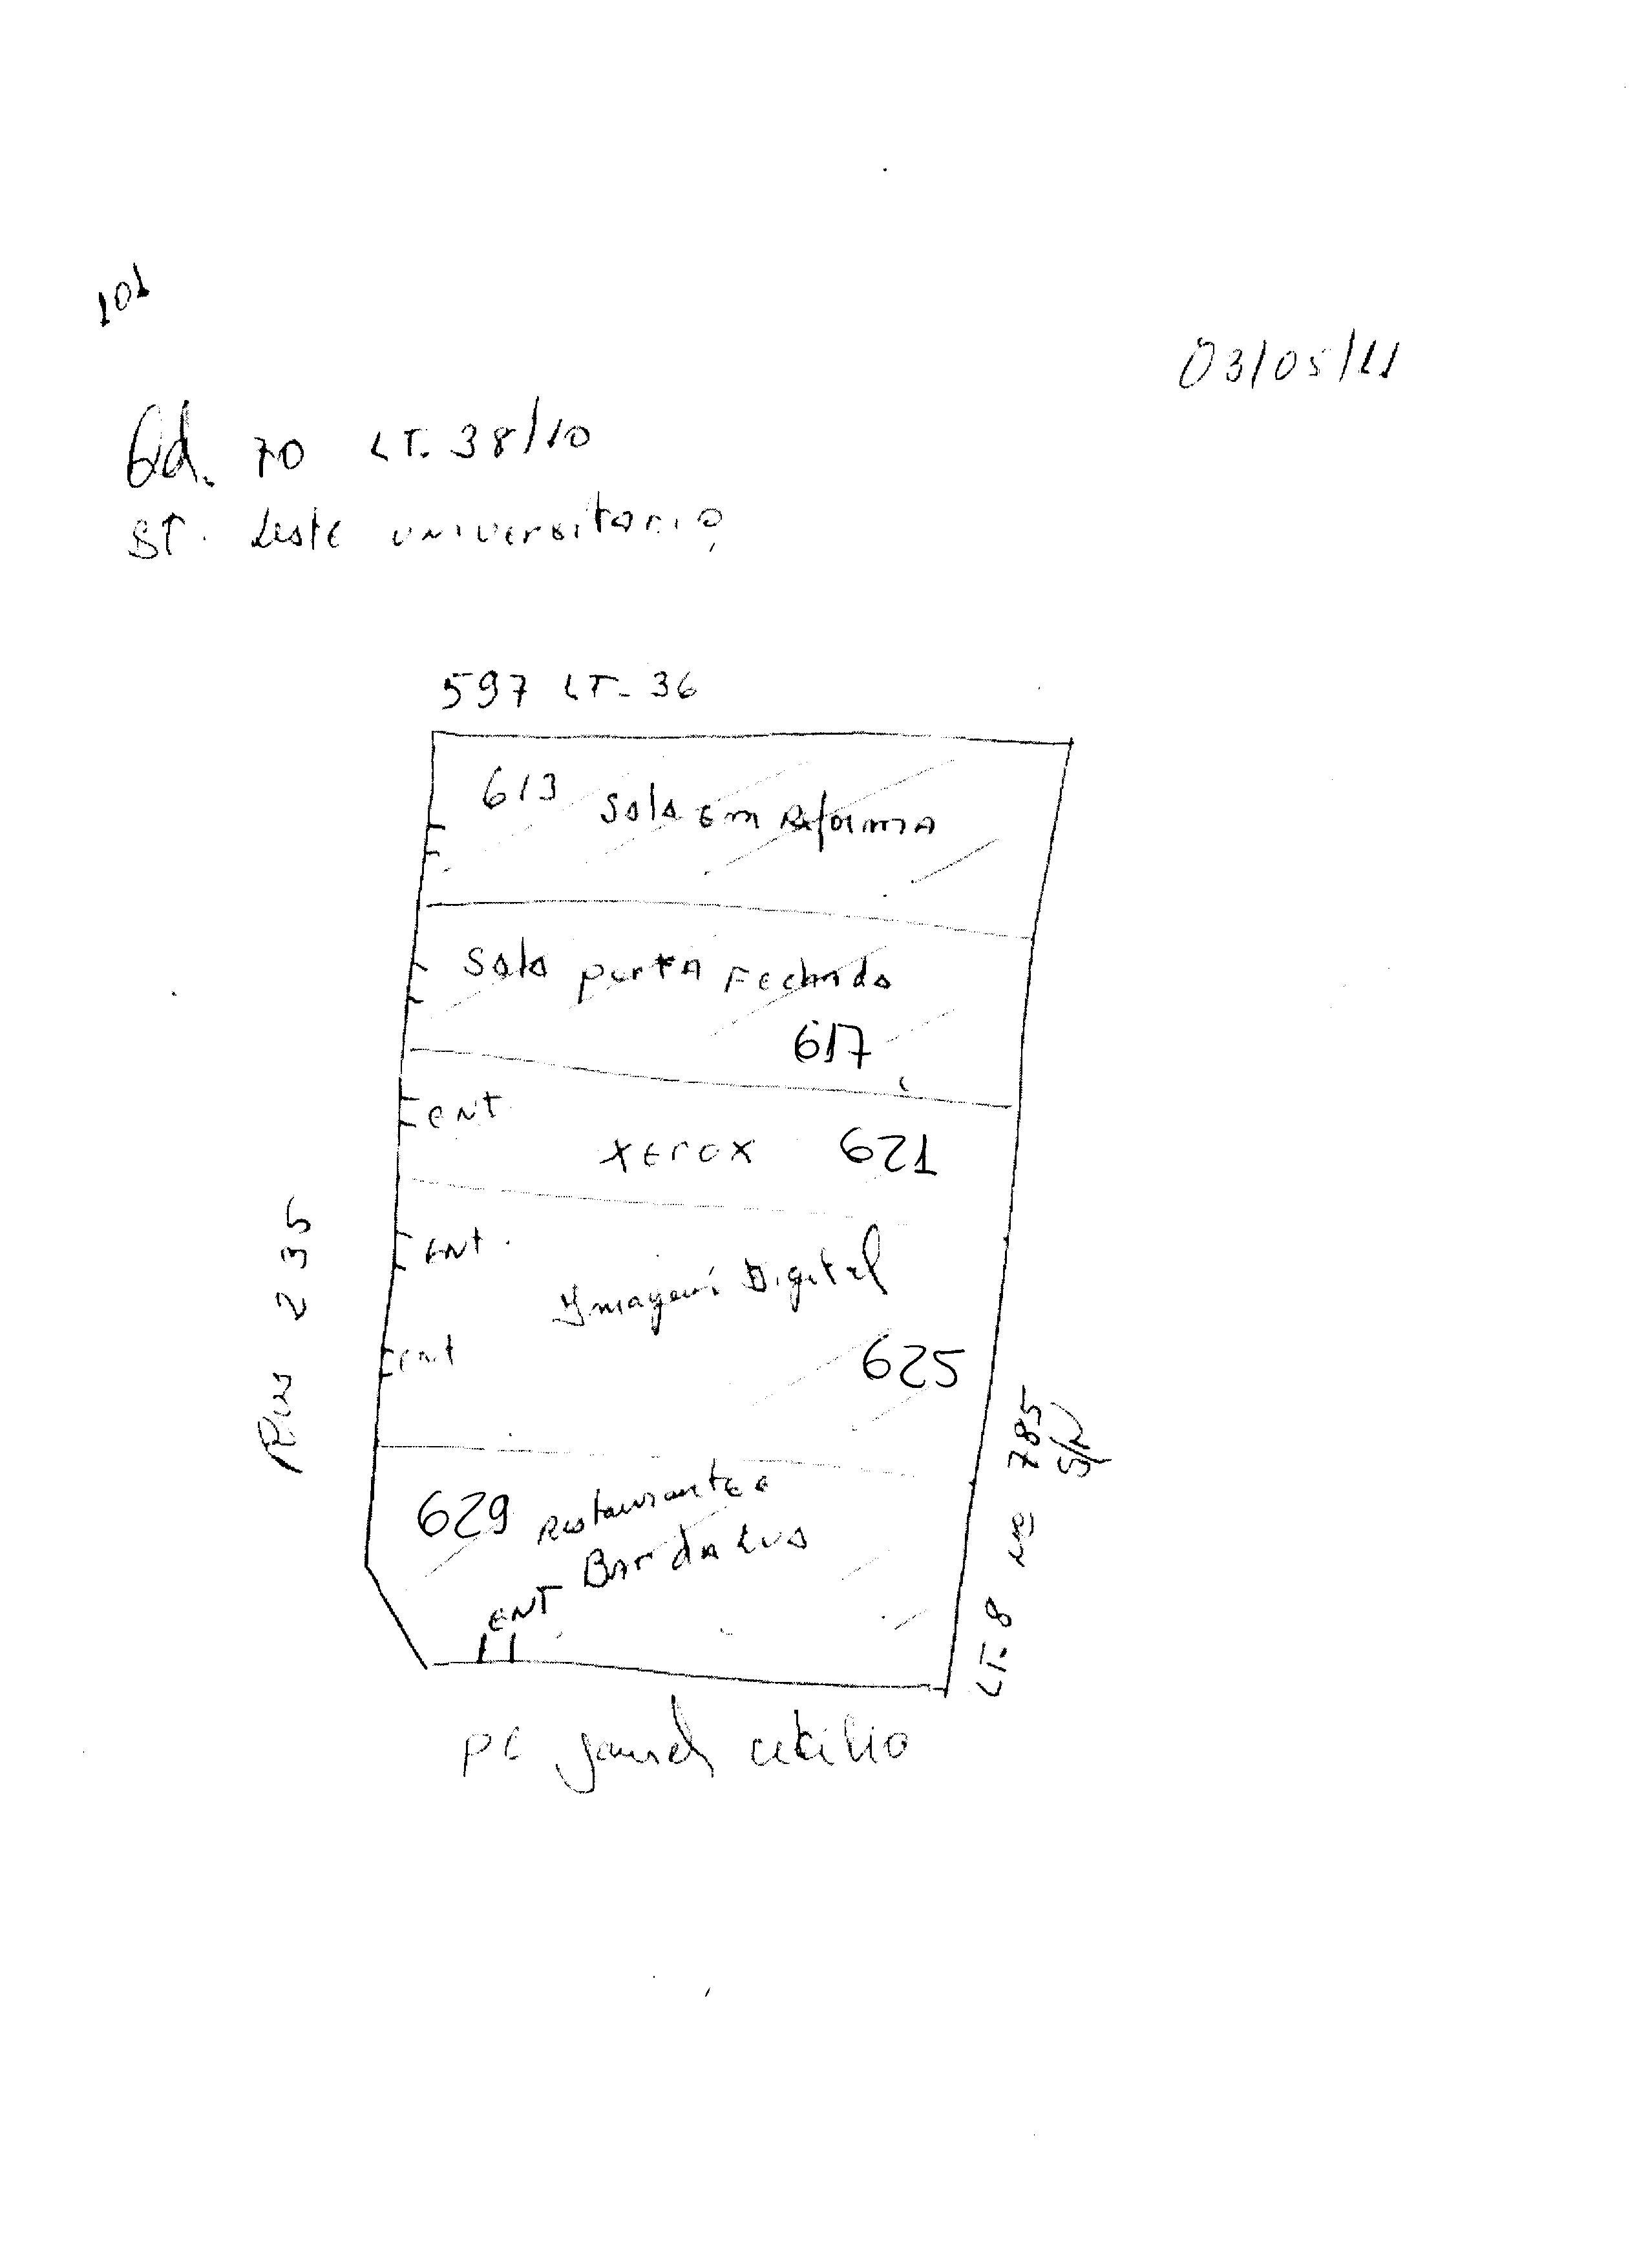 101
03/05/11
Qd. 70 LT. 38/10
ST. Leste universitario
597 LT- 36
613 Sala Em Reforma
Sala portA Fechada
617
ENT.
XEROX 621
ENT.
Imagem Digital
Ent
625
629 Restaurante e
Bar da Lua
ENT
Rua 235
LT. 8 Nº 785
S/N
PC